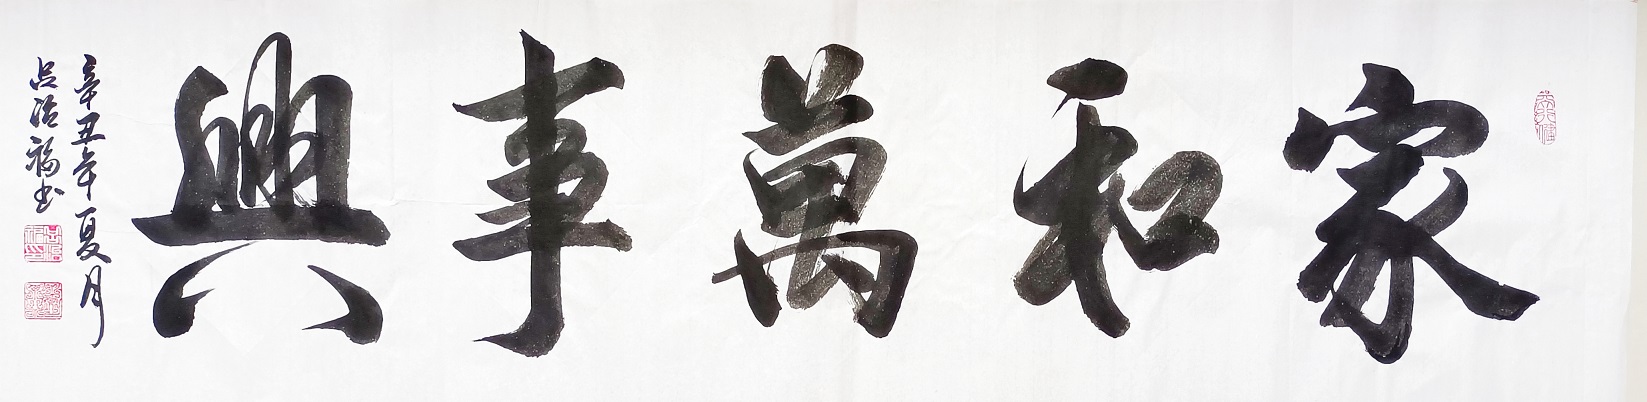 家和萬事興
辛丑年夏月
呂治福书